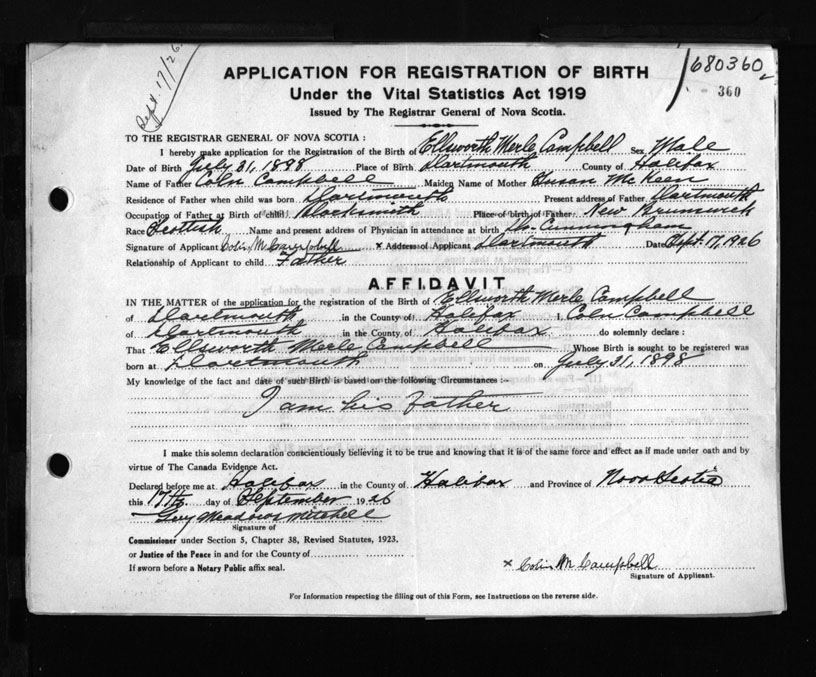 Sept. 17/26.
680360
360
APPLICATION FOR REGISTRATION OF BIRTH
Under the Vital Statistics Act 1919
Issued by The Registrar General of Nova Scotia.
TO THE REGISTRAR GENERAL OF NOVA SCOTIA :
I hereby make application for the Registration of the Birth of Ellsworth Merle Campbell Sex Male
Date of Birth July 31, 1898 Place of Birth Dartmouth County of Halifax
Name of Father Colin Campbell Maiden Name of Mother Susan
Residence of Father when child was born Dartmouth Present address of Father Dartmouth
Occupation of Father at Birth of child Blacksmith Place of birth of Father New Brunswick
Race Scottish Name and present address of Physician in attendance at birth Dr. Cunningham
Signature of Applicant Colin M. Campbell x Address of Applicant Dartmouth Date Sept. 17, 1926
Relationship of Applicant to child Father
AFFIDAVIT
IN THE MATTER of the application for the registration of the Birth of Ellsworth Merle Campbell
of Dartmouth in the County of Halifax I, Colin Campbell
of Dartmouth in the County of Halifax do solemnly declare :
That Ellsworth Merle Campbell Whose Birth is sought to be registered was
born at Dartmouth on July 31, 1898
My knowledge of the fact and date of such Birth is based on the following Circumstances :-
I am his father
I make this solemn declaration conscientiously believing it to be true and knowing that it is of the same force and effect as if made under oath and by
virtue of The Canada Evidence Act.
Declared before me at Halifax in the County of Halifax and Province of Nova Scotia
this 17th day of September 1926
Meadows Mitchell
Signature of
Commissioner under Section 5, Chapter 38, Revised Statutes, 1923.
or Justice of the Peace in and for the County of
If sworn before a Notary Public affix seal.
x Colin M Campbell
Signature of Applicant.
For Information respecting the filling out of this Form, see Instructions on the reverse side.